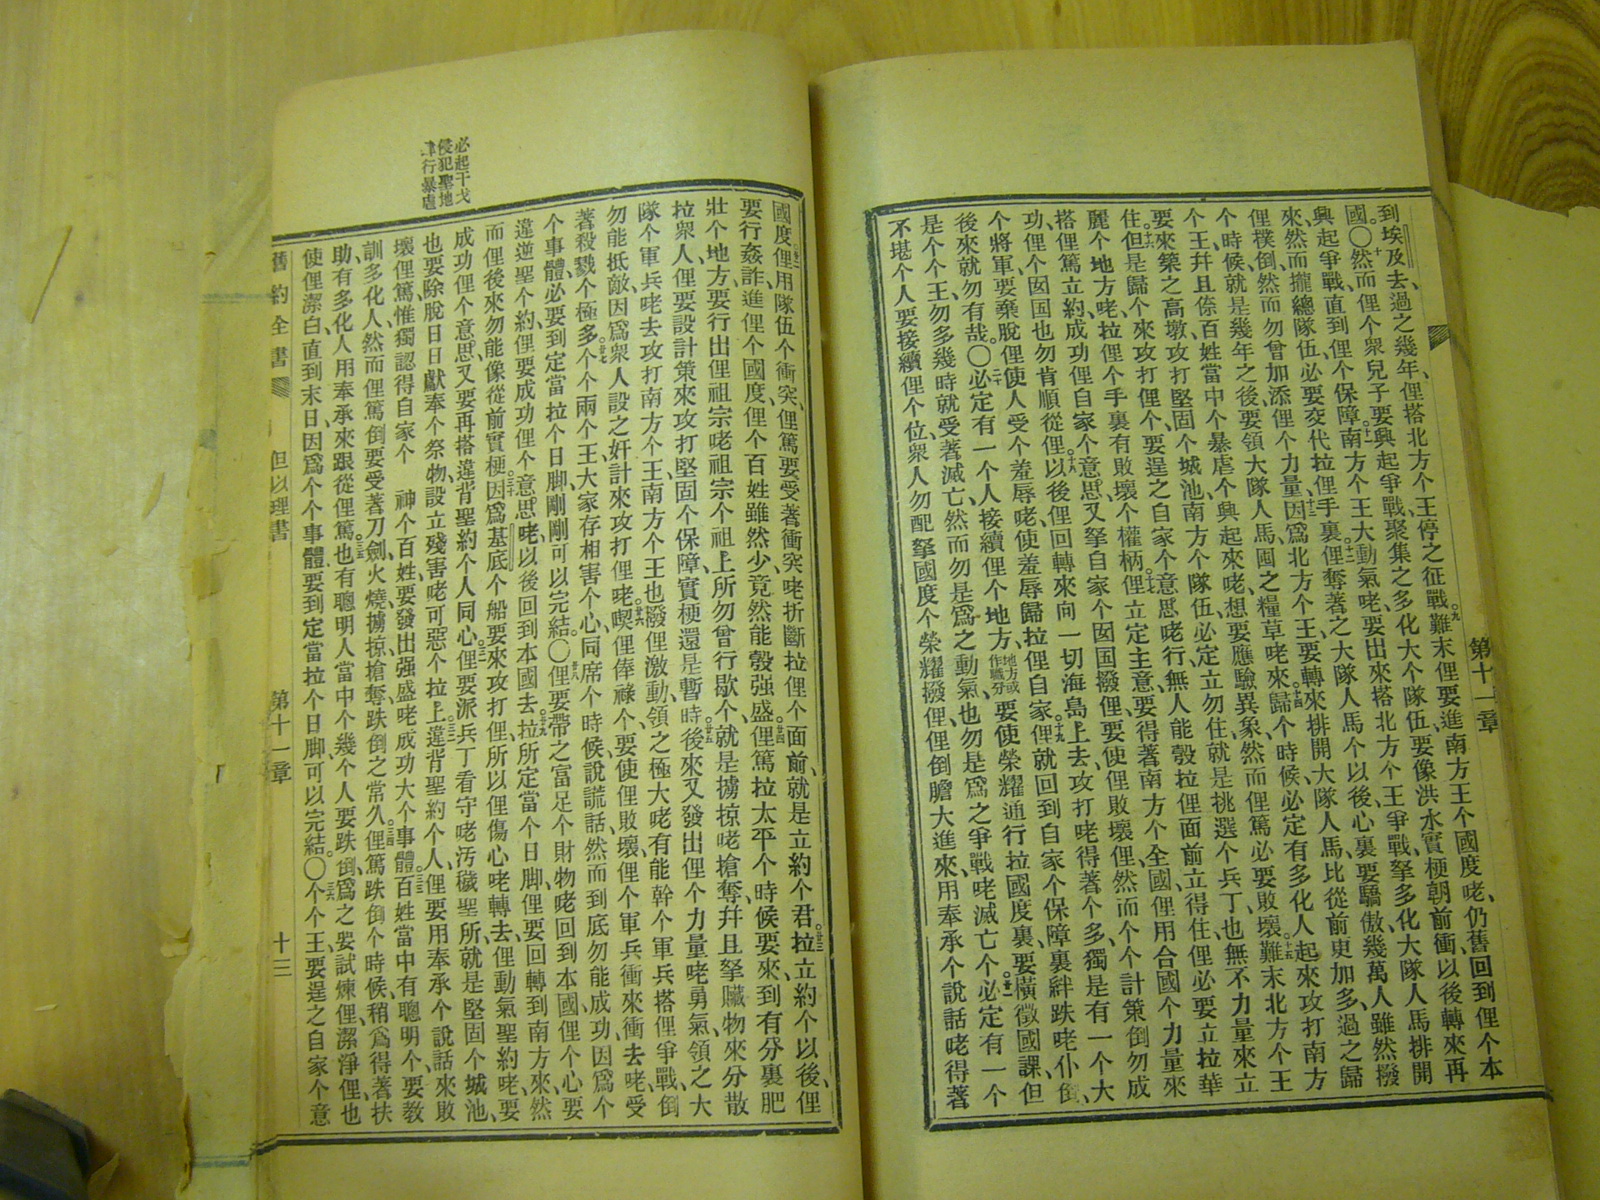 到埃及去過之幾年俚搭北方个王停之征戰九難末俚要進南方王个國度咾仍舊回到俚个本
國〇十然而俚个衆兒子要興起爭戰聚集之多化大个隊伍要像洪水實梗朝前衝以後轉來再
興起爭戰直到俚个保障十一南方个王大動氣咾要出來搭北方个王爭戰拏多化大隊人馬排開
來然而攏總隊伍必要交代拉俚手裏十二俚奪著之大隊人馬个以後心裏要驕傲幾萬人雖然撥
俚撲倒然而勿曾加添俚个力量十三因爲北方个王要轉來排開大隊人馬比從前更加多過之歸
个時候就是幾年之後要領大隊人馬囤之糧草咾來十四歸个時候必定有多化人起來攻打南方
个王幷且倷百姓當中个暴虐个興起來咾想要應驗異象然而俚篤必要敗壞十五難末北方个王
要來築之高墩攻打堅固个城池南方个隊伍必定立勿住就是挑選个兵丁也無不力量來立
住十六但是歸个來攻打俚个要逞之自家个意思咾行無人能彀拉俚面前立得住俚必要立拉華
麗个地方咾拉俚个手裏有敗壞个權柄十七俚立定主意要得著南方个全國俚用合國个力量來
搭俚篤立約成功俚自家个意思又拏自家个囡囯撥俚要使俚敗壞俚然而个个計策倒勿成
功俚个囡囯也勿肯順從俚十八以後俚回轉來向一切海島上去攻打咾得著个多獨是有一个大
个將軍要棄脫俚使人受个羞辱咾使羞辱歸拉俚自家十九俚就回到自家个保障裏絆跌咾仆倒
後來就勿有哉〇二十必定有一个人接續俚个地方地方或作職分要使榮耀通行拉國度裏要橫徵國課但
是个个王勿多幾時就受著滅亡然而勿是爲之動氣也勿是爲之爭戰咾滅亡个廿一必定有一个
不堪个人要接續俚个位衆人勿配拏國度个榮耀撥俚俚倒膽大進來用奉承个說話咾得著
第十一章
必起干戈
侵犯聖地
肆行暴虐
國度廿二俚用隊伍个衝突俚篤要受著衝突咾折斷拉俚个面前就是立約个君廿三拉立約个以後俚
要行姦詐進俚个國度俚个百姓雖然少竟然能彀强盛廿四俚篤拉太平个時候要來到有分裏肥
壯个地方要行出俚祖宗咾祖宗个祖上所勿曾行歇个就是擄掠咾搶奪幷且拏贓物來分散
拉衆人俚要設計策來攻打堅固个保障實梗還是暫時廿五後來又發出俚个力量咾勇氣領之大
隊个軍兵咾去攻打南方个王南方个王也撥俚激動領之極大咾有能幹个軍兵搭俚爭戰倒
勿能抵敵因爲衆人設之奸計來攻打俚咾廿六喫俚俸祿个要使俚敗壞俚个軍兵衝來衝去咾受
著殺戮个極多廿七个个兩个王大家存相害个心同席个時候說謊話然而到底勿能成功因爲个
个事體必要到定當拉个日脚剛剛可以完結〇廿八俚要帶之富足个財物咾回到本國俚个心要
違逆聖个約俚要成功俚个意思咾以後回到本國去廿九拉所定當个日脚俚要回轉到南方來然
而俚後來勿能像從前實梗三十因爲基底个船要來攻打俚所以俚傷心咾轉去俚動氣聖約咾要
成功俚个意思又要再搭違背聖約个人同心三一俚要派兵丁看守咾汚穢聖所就是堅固个城池
也要除脫日日獻奉个祭物設立殘害咾可惡个拉上三二違背聖約个人俚要用奉承个說話來敗
壞俚篤惟獨認得自家个　神个百姓要發出强盛咾成功大个事體三三百姓當中有聰明个要教
訓多化人然而俚篤倒要受著刀劍火燒擄掠搶奪跌倒之常久三四俚篤跌倒个時候稍爲得著扶
助有多化人用奉承來跟從俚篤三五也有聰明人當中个幾个人要跌倒爲之要試煉俚潔淨俚也
使俚潔白直到末日因爲个个事體要到定當拉个日脚可以完結〇三六个个王要逞之自家个意
舊約全書　但以理書　第十一章　十三